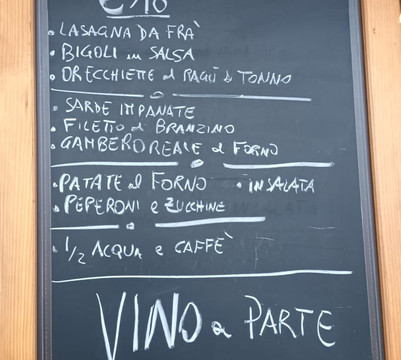 • LASAGNA DA FRÀ
• BIGOLI in SALSA
• ORECCHIETTE al RAGÙ di TONNO
• SARDE IMPANATE
• FILETTO di BRANZINO
• GAMBERO REALE al FORNO
• PATATE al FORNO • INSALATA
• PEPERONI e ZUCCHINE
• 1/2 ACQUA e CAFFÈ
VINO a PARTE